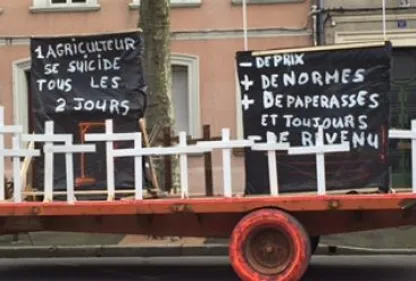 1 AGRICULTEUR
SE SUICIDE
TOUS LES
2 JOURS
- DE PRIX
+ DE NORMES
+ DE PAPERASSES
ET TOUJOURS
- DE REVENU